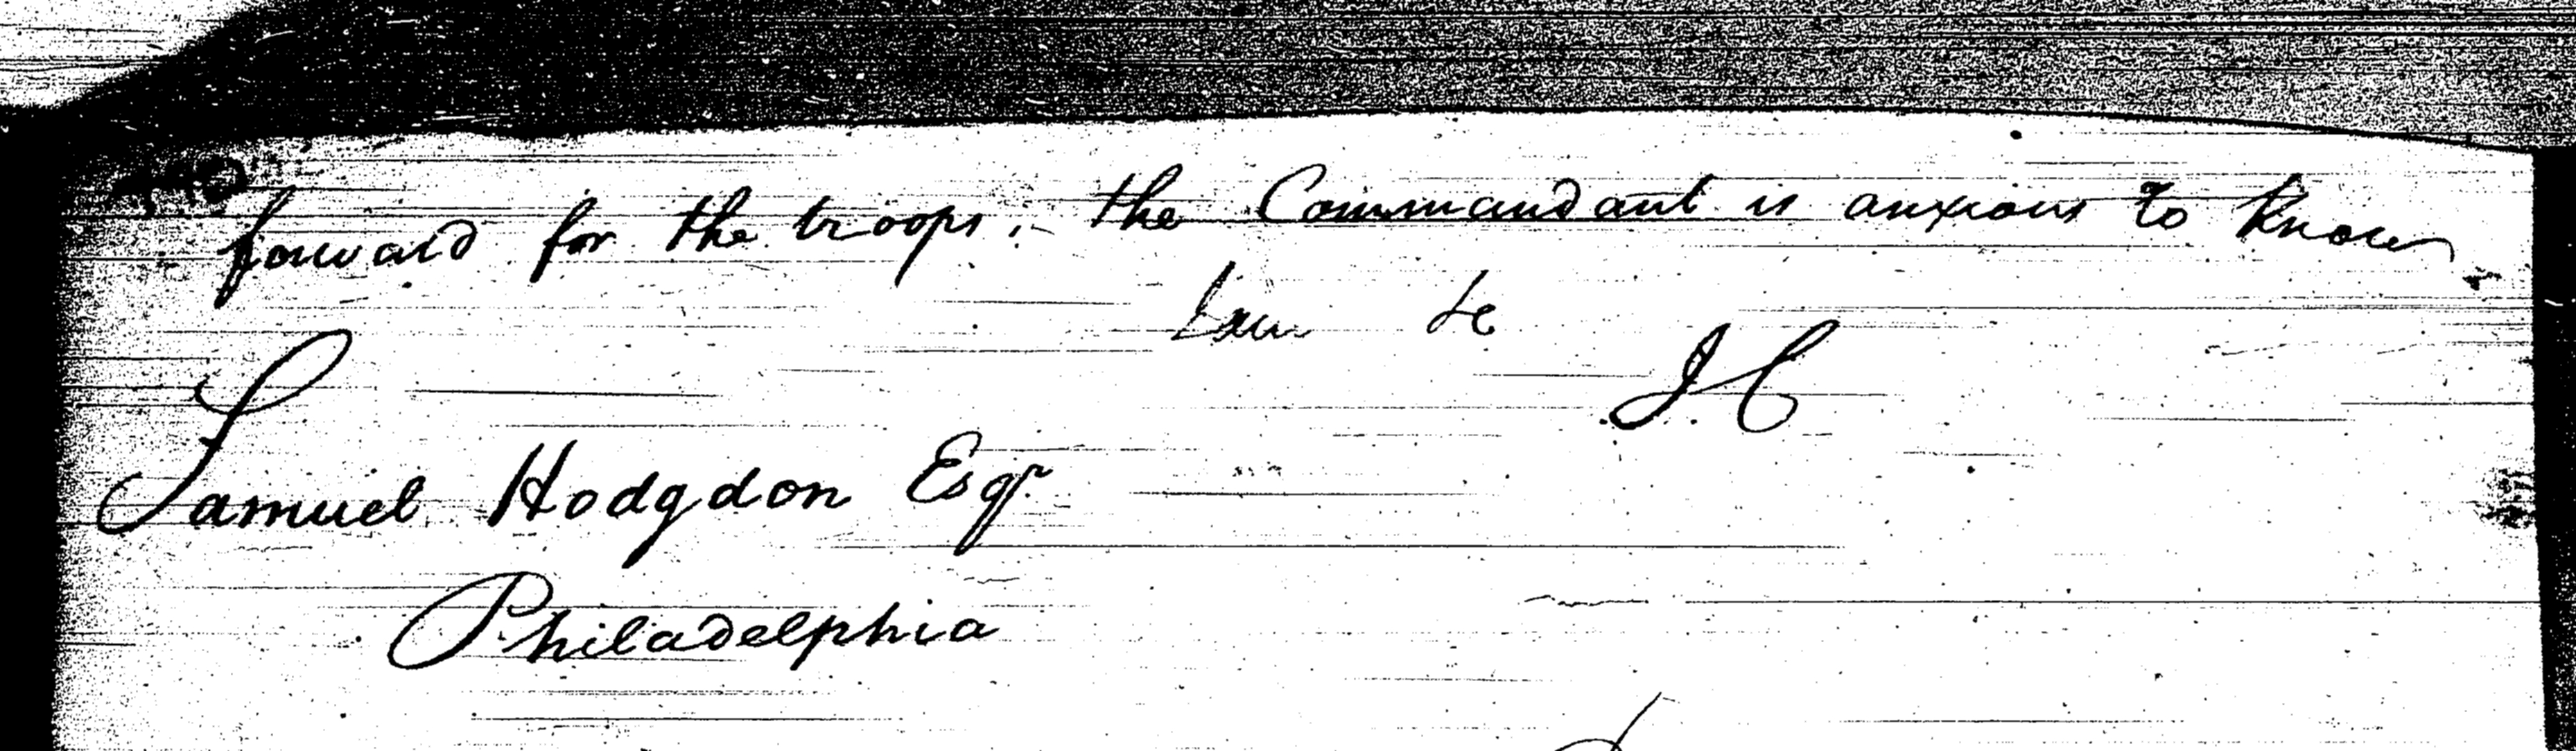 forward for the troops; the Commandant is anxious to know
I am &c
JC
Samuel Hodgdon Esqr.
Philadelphia